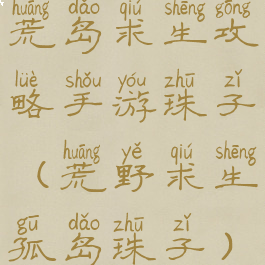 huāng dǎo qiú shēng gōng
荒岛求生攻
lüè shǒu yóu zhū zǐ
略手游珠子
huāng yě qiú shēng
（荒野求生
gū dǎo zhū zǐ
孤岛珠子）